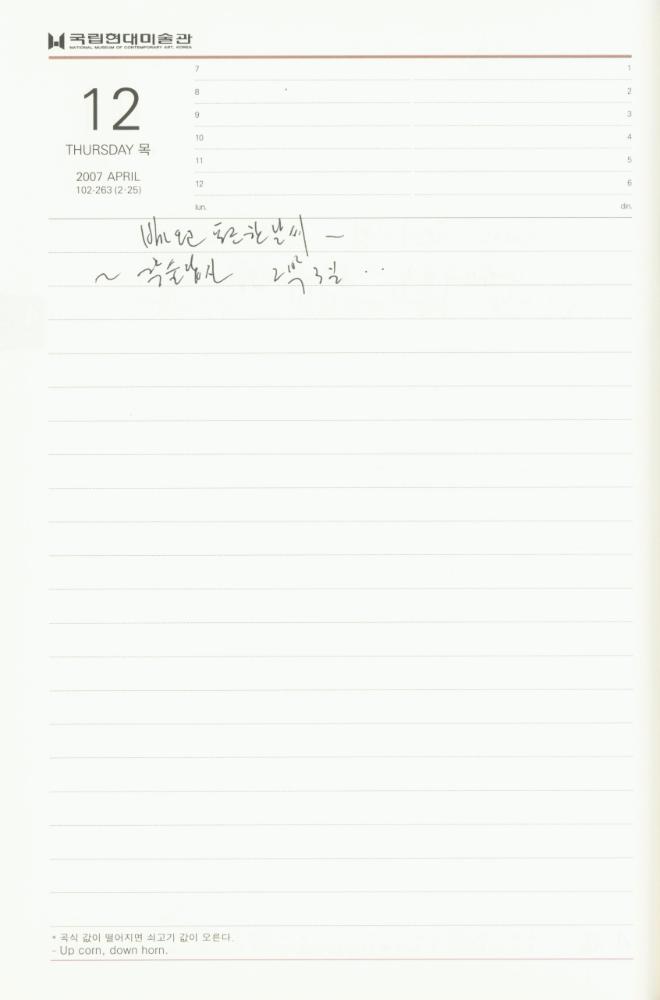 국립현대미술관
NATIONAL MUSEUM OF CONTEMPORARY ART, KOREA
12
THURSDAY 목
2007 APRIL
102-263 (2·25)
7
8
9
10
11
12
lun.
1
2
3
4
5
6
din.
날씨 —
~ 2 3일 ··
* 곡식 값이 떨어지면 쇠고기 값이 오른다.
- Up corn, down horn.